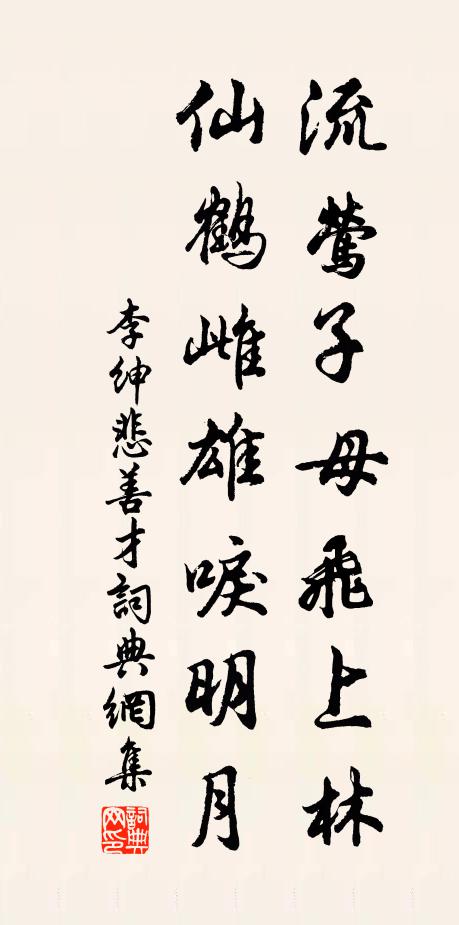 流鶯子母飛上林
仙鶴雌雄唳明月
李紳悲善才詞典網集
詞典網印